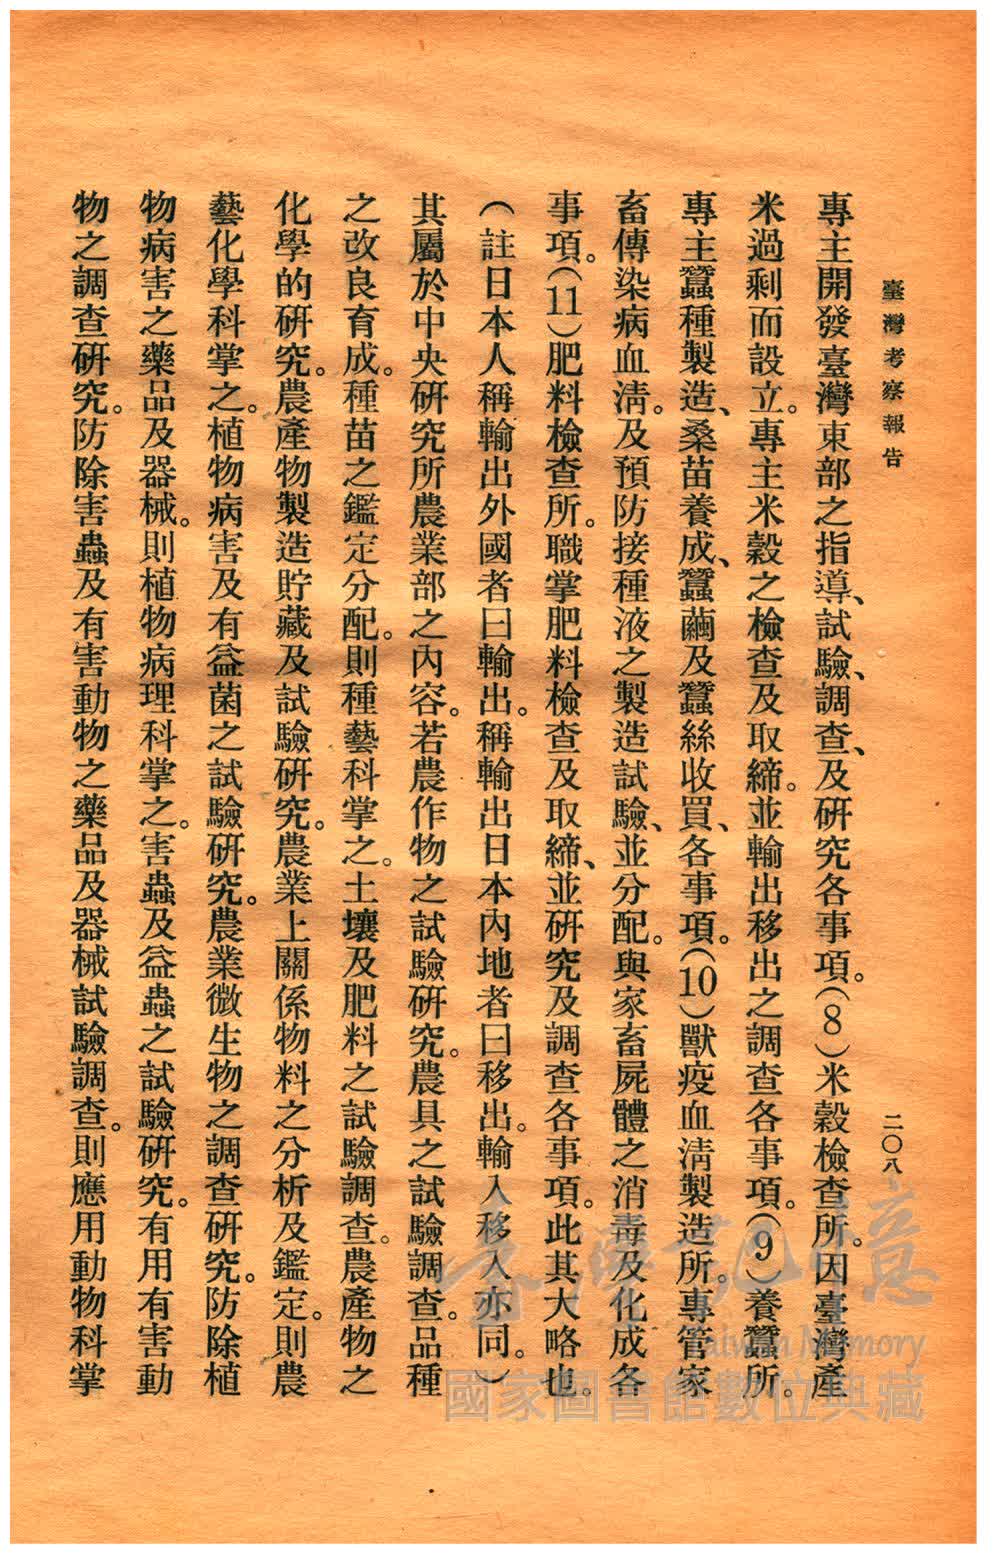 臺灣考察報告
二〇八
專主開發臺灣東部之指導、試驗、調查、及硏究各事項。(8)米穀檢查所。因臺灣產
米過剩而設立。專主米穀之檢查及取締。並輸出移出之調查各事項。(9)養蠶所。
專主蠶種製造、桑苗養成、蠶繭及蠶絲收買、各事項。(10)獸疫血淸製造所。專管家
畜傳染病血淸。及預防接種液之製造試驗、並分配。與家畜屍體之消毒及化成各
事項。(11)肥料檢查所。職掌肥料檢查及取締、並硏究及調查各事項。此其大略也。
(註日本人稱輸出外國者曰輸出。稱輸出日本內地者曰移出。輸入移入亦同。)
其屬於中央硏究所農業部之內容。若農作物之試驗硏究。農具之試驗調查。品種
之改良育成。種苗之鑑定分配。則種藝科掌之。土壤及肥料之試驗調查。農產物之
化學的硏究。農產物製造貯藏及試驗硏究。農業上關係物料之分析及鑑定。則農
藝化學科掌之。植物病害及有益菌之試驗硏究。農業微生物之調查硏究。防除植
物病害之藥品及器械。則植物病理科掌之。害蟲及益蟲之試驗硏究。有用有害動
物之調查硏究。防除害蟲及有害動物之藥品及器械試驗調查。則應用動物科掌
臺灣記憶
Taiwan Memory
國家圖書館數位典藏